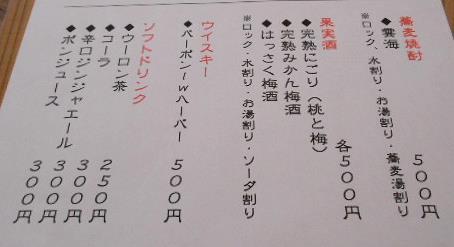 蕎麦焼酎
◆雲海 500円
※ロック、水割り・お湯割り・蕎麦湯割り
果実酒
◆完熟にごり(桃と梅) 各500円
◆完熟みかん梅酒
◆はっさく梅酒
※ロック・水割り・お湯割り・ソーダ割り
ウイスキー
◆バーボンIWハーパー 500円
ソフトドリンク
◆ウーロン茶 250円
◆コーラ 300円
◆辛口ジンジャエール 300円
◆ポンジュース 300円